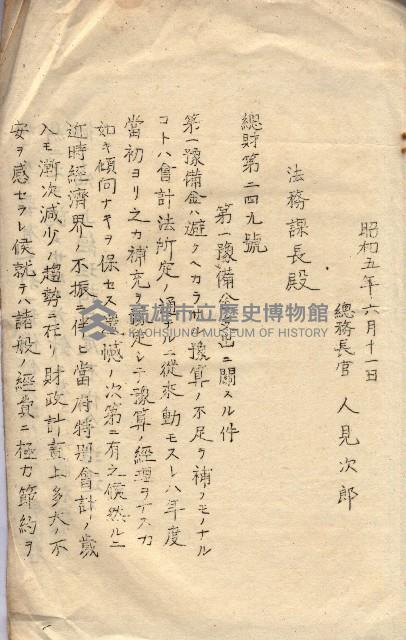 昭和五年六月十一日
總務長官 人見次郎
法務課長殿
總財第二四九號
第一豫備金支出ニ關スル件
第一豫備金ハ避クヘカラサル豫算ノ不足ヲ補フモノナル
コトハ會計法所定ノ通ナルニ從來動モスレハ年度
當初ヨリ之カ補充ヲ豫定シテ豫算ノ經理ヲナスカ
如キ傾向ナキヲ保セス遺憾ノ次第ニ有之候然ルニ
近時經濟界ノ不振ニ伴ヒ當府特別會計ノ歲
入モ漸次減少ノ趨勢ニ在リ財政計畫上多大ノ不
安ヲ感セラレ候就テハ諸般ノ經費ニ極力節約ヲ
高雄市立歷史博物館
KAOHSIUNG MUSEUM OF HISTORY